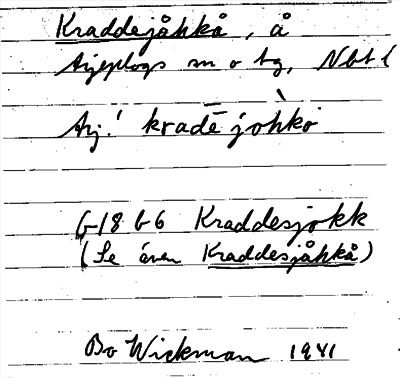 Kraddejåhkå, å
Arjeplogs sn o tg, Nbt l
Arj! kradē jòhkò
G-18 b-6 Kraddesjokk
(Se även Kraddesjåhkå)
Bo Wickman 1941